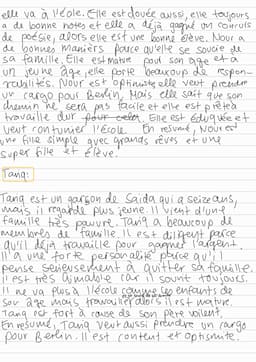 elle va à l'école. Elle est douée aussi, elle toujours
a de bonne notes et elle a déjà gagné un concurs
de poésie, alors elle est une bonne élève. Nour a
de bonnes manièrs parce qu'elle se soucie de
sa famille. Elle est mature pour son age et a
un jeune âge, elle porte beaucoup de respon-
savalités. Nour est optimiste, elle veut prendre
un cargo pour Berlin. Mais elle sait que son
chemin ne sera pas facile et elle est prête à
travaille dur pour cela. Elle est éduquée et
veut contunier l'école. En resumé, Nour est
une fille simple avec grands rêves et une
super fille et élève.
Tariq:
Tariq est un garson de Saida qui a seize ans,
mais il regarde plus jeune. Il vient d'une
famille très pauvre. Tariq a beaucoup de
membres de famille. Il est diligent parce
qu'il déjà travaille pour gagner l'argent.
Il a une forte personalité parce qu'il
pense serieusement à quitter sa famille.
Il est très aimable car il sourit toujours.
Il ne va plus à l'école comme les enfants de
son âge mais travailler alors il est mature.
Tariq est fort à cause de son père violent.
En resumé, Tariq veut aussi prendre un cargo
pour Berlin. Il est content et optismite.